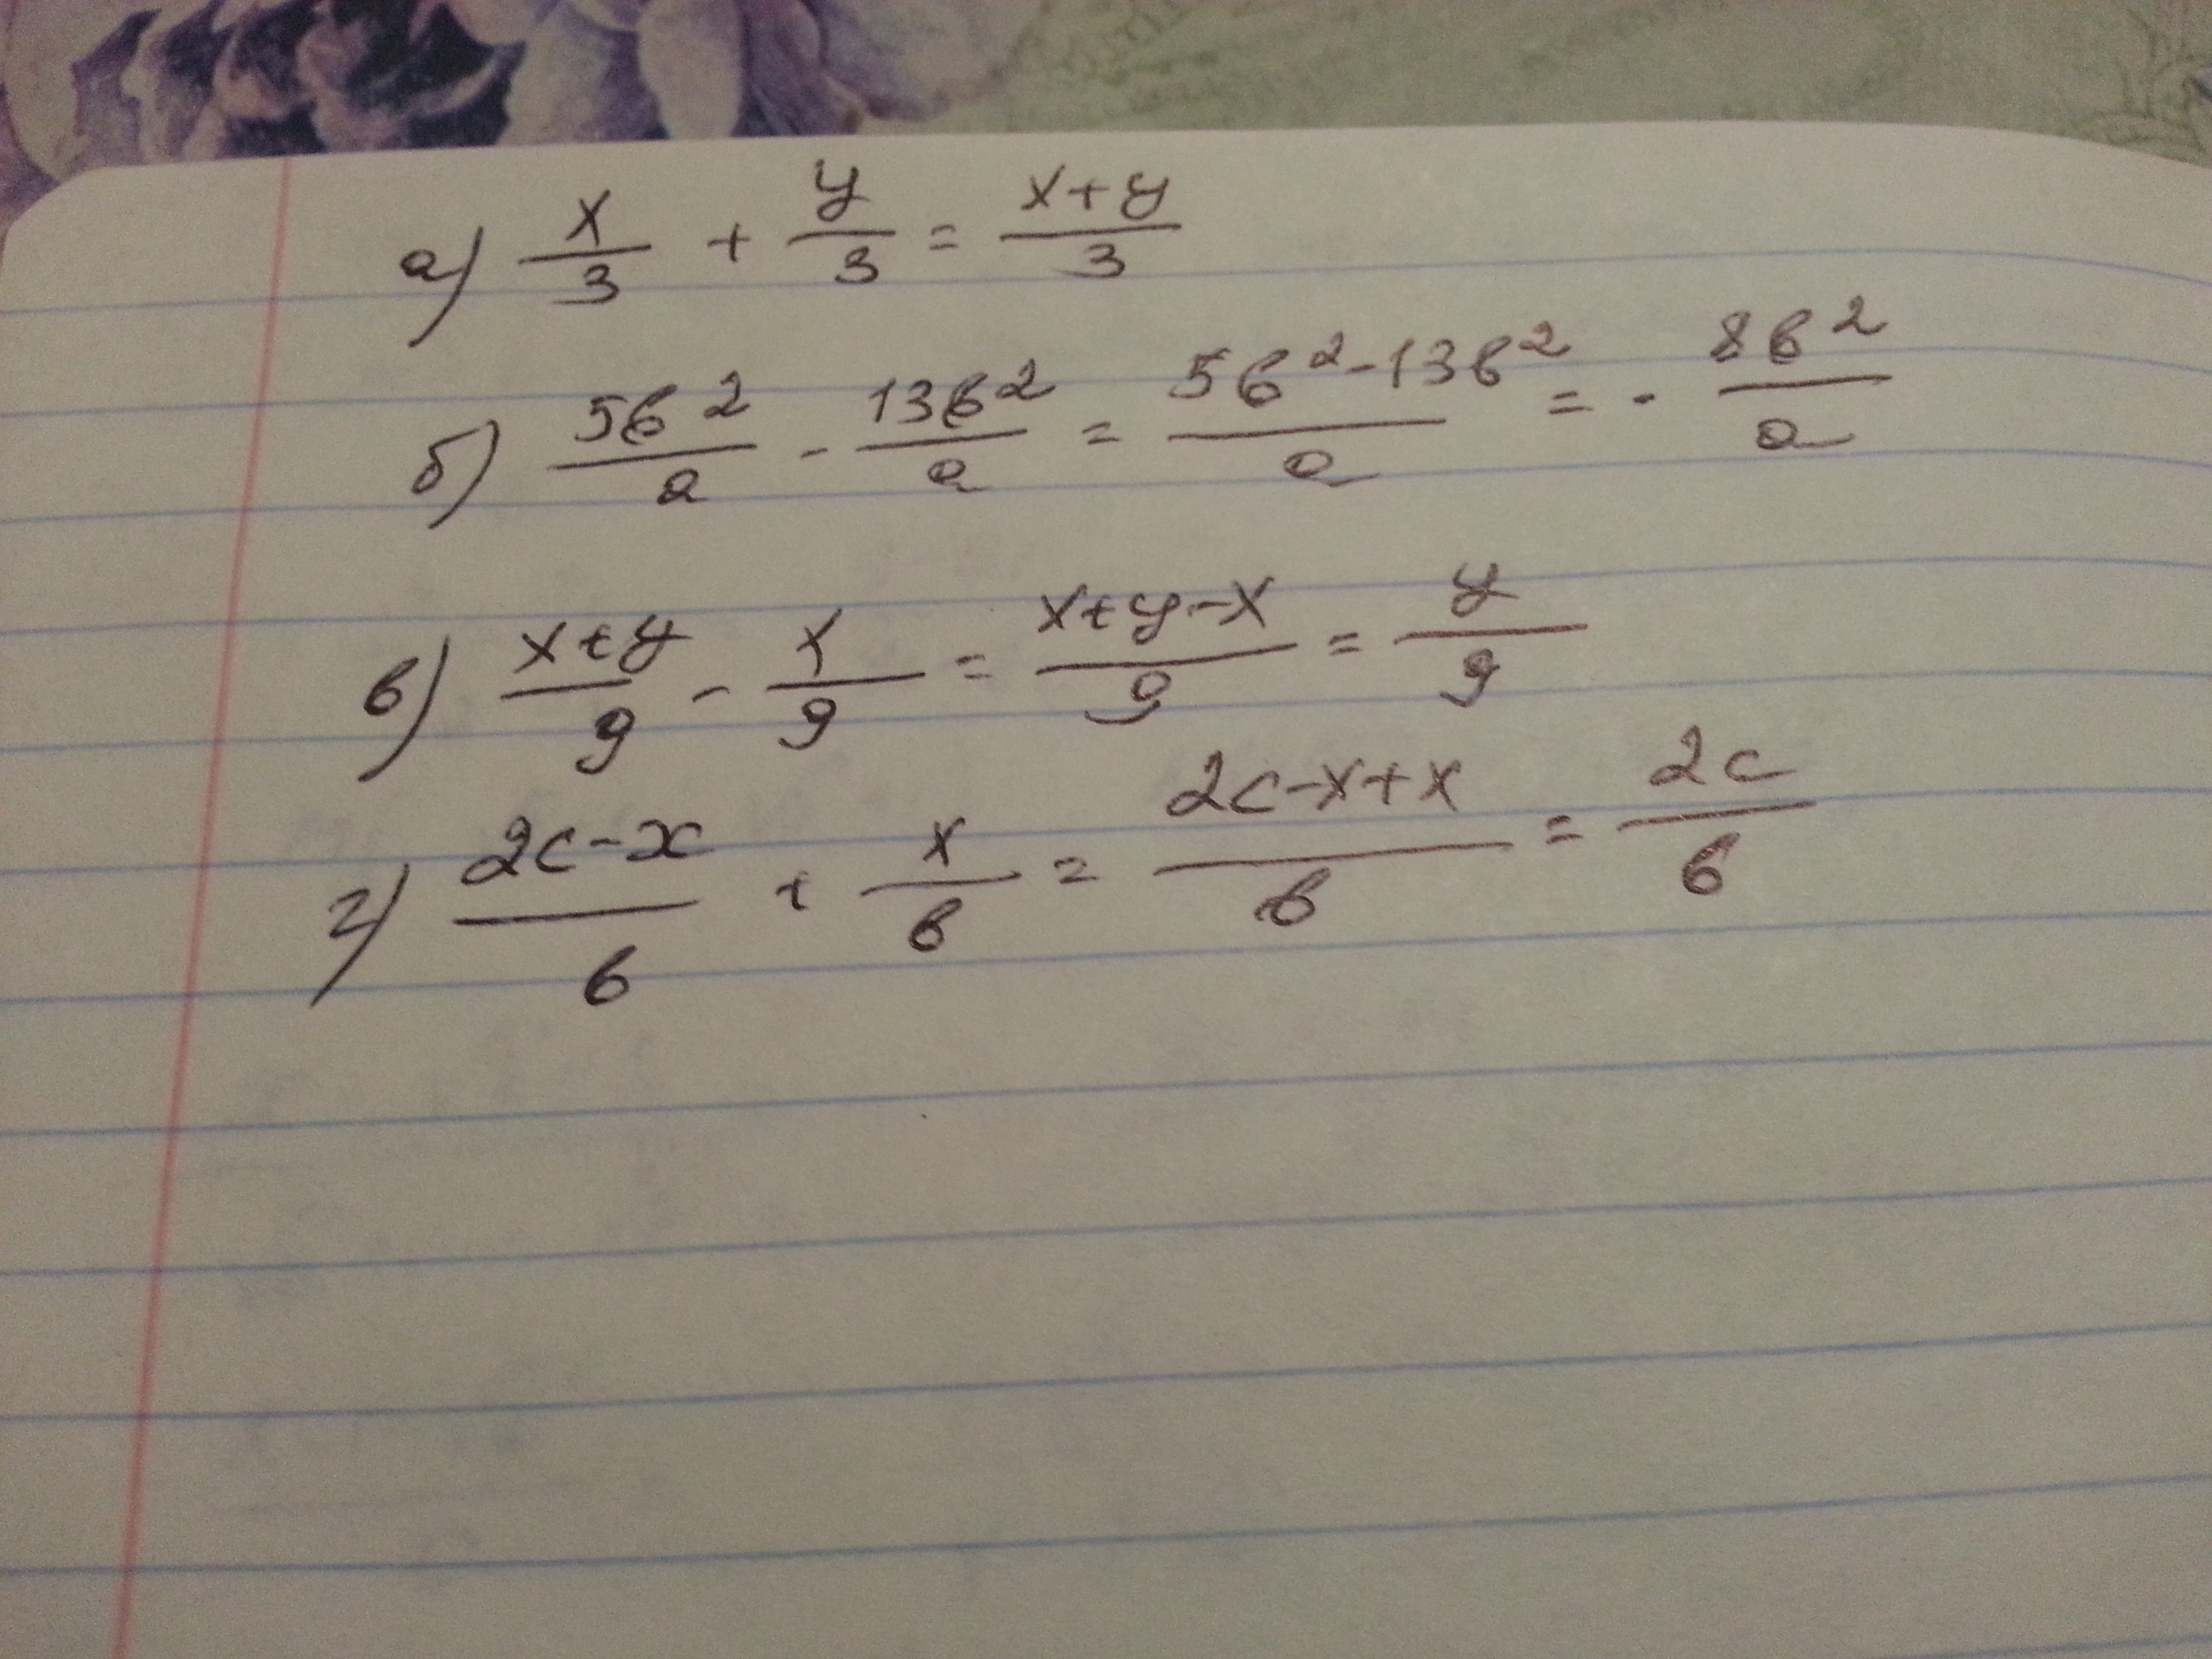 а) x/3 + y/3 = x+y/3
б) 5b²/a - 13b²/a = 5b²-13b²/a = - 8b²/a
в) x+y/9 - x/9 = x+y-x/9 = y/9
г) 2c-x/b + x/b = 2c-x+x/b = 2c/b